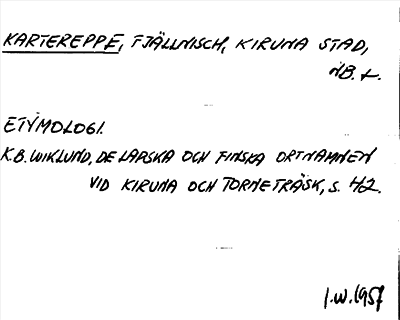 KARTEREPPE, FJÄLLNISCH, KIRUNA STAD,
NB. L.
ETYMOLOGI.
K.B. WIKLUND, DE LAPSKA OCH FINSKA ORTNAMNEN
VID KIRUNA OCH TORNETRÄSK, S. 42.
I.W. 1957